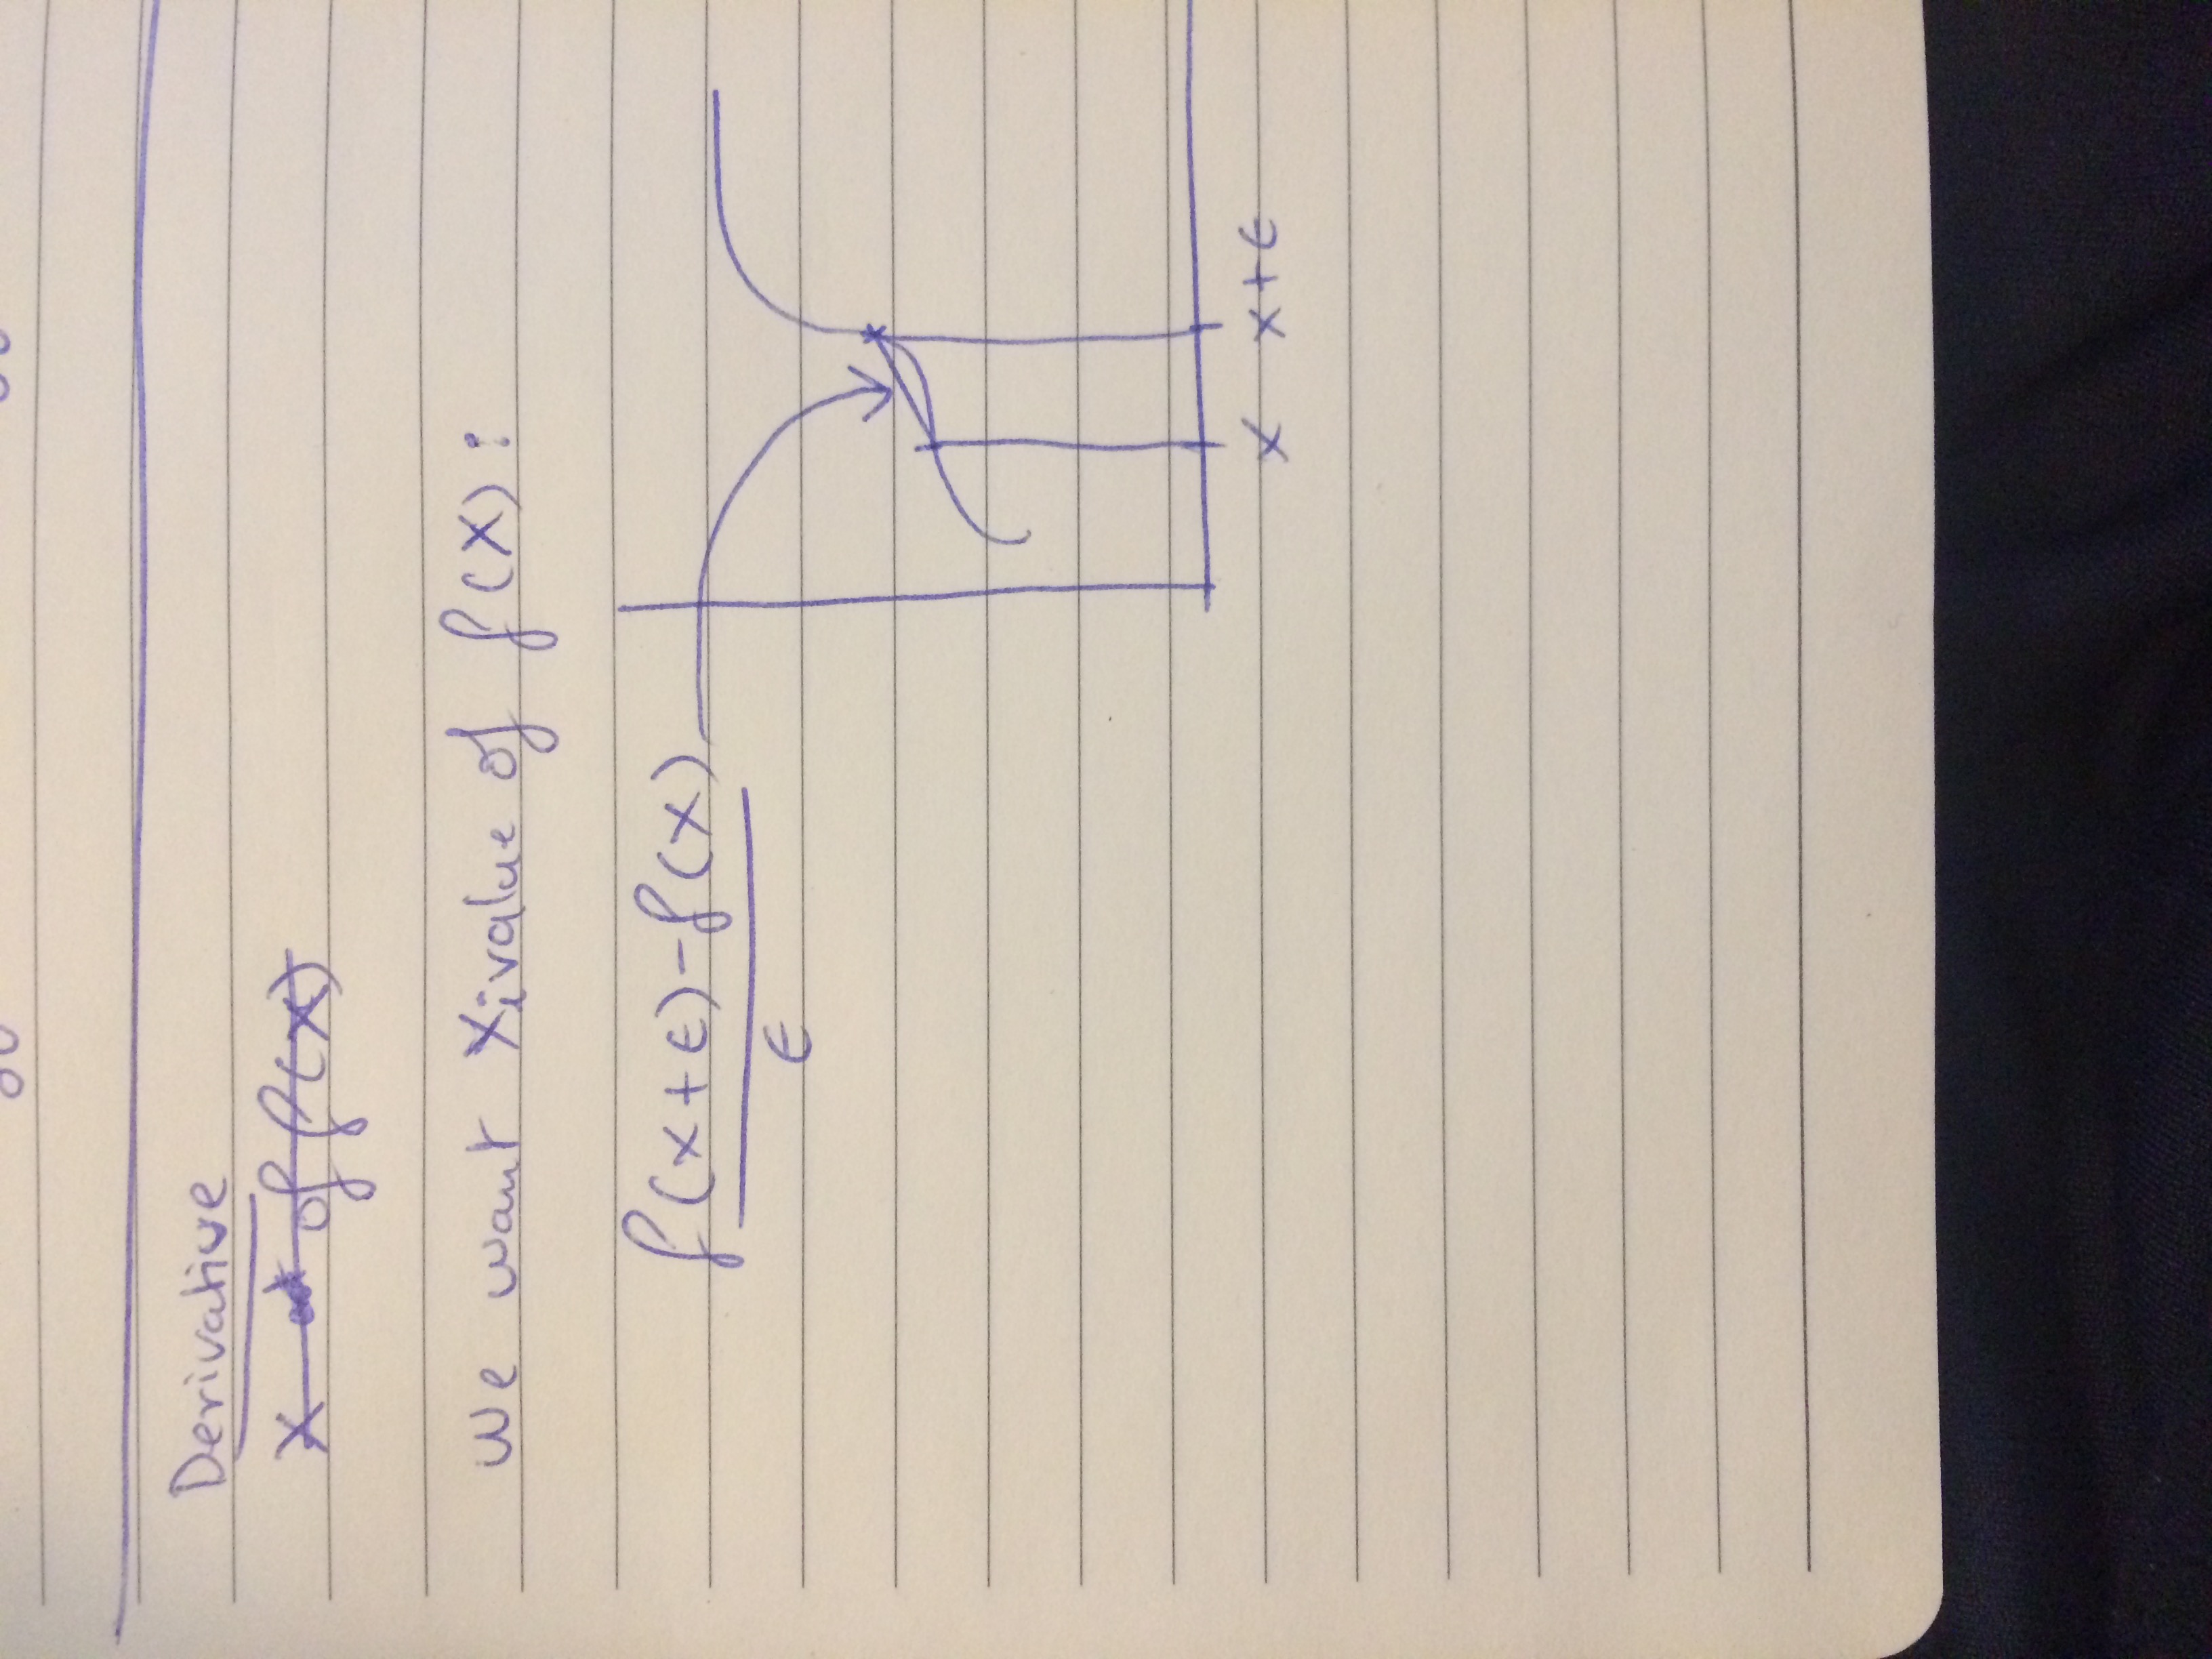 Derivative
x of f(x)
We want xi value of f(x):
f(x+ϵ)-f(x)
ϵ
x x+ϵ